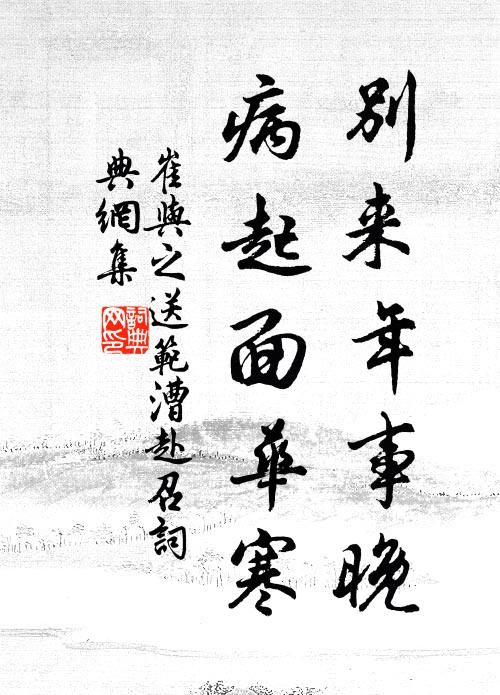 别来年事晚
病起面華寒
崔與之送範漕赴召詞
典網集
詞典网印